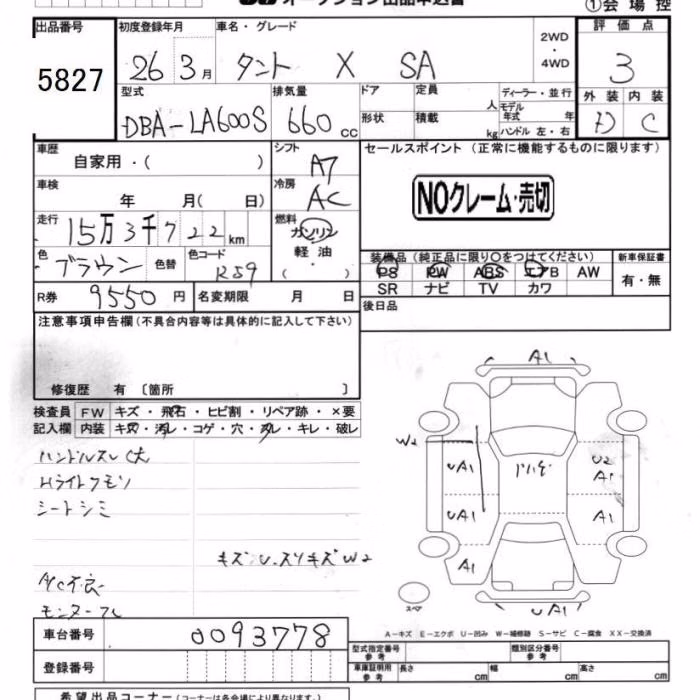 オークション出品申込書
①会場控
出品番号 初度登録年月 車名・グレード 評価点
5827 26 3月 タント X SA 2WD・4WD 3
型式 排気量 ドア 定員 人 ディーラー・並行 外装 内装
DBA-LA600S 660cc 形状 積載 kg モデル年式 年 ハンドル 左・右 D C
車歴 自家用・( ) シフト A7 セールスポイント (正常に機能するものに限ります)
車検 年 月( 日) 冷房 AC NOクレーム・売切
走行 15万3千722km 燃料 ガソリン
軽油
・( )
色 ブラウン 色替 色コード R59
装備品(純正品に限り○をつけてください) 新車保証書
PS PW ABS エアB AW 有・無
SR ナビ TV カワ
R券 9550円 名変期限 月 日 後日品
注意事項申告欄(不具合内容等は具体的に記入して下さい)
修復歴 有 〔箇所 〕
検査員 FW キズ・飛石・ヒビ割・リペア跡・×要
記入欄 内装 キズ・汚レ・コゲ・穴・スレ・キレ・破レ
ハンドルスレ大
Hライトクモリ
シートシミ
キズ、U、スリキズW2
A/C不良
モニター
A1
W2
UA1 U2
A1
UA1 A1
A1
UA1
スペア
A-キズ E-エクボ U-凹み W-補修跡 S-サビ C-腐食 XX-交換済
車台番号 0093778
型式指定番号 参考 類別区分番号 参考
登録番号
車庫証明用 参考 長さ cm 幅 cm 高さ cm
希望出品コーナー(コーナーは各会場により異なります。)